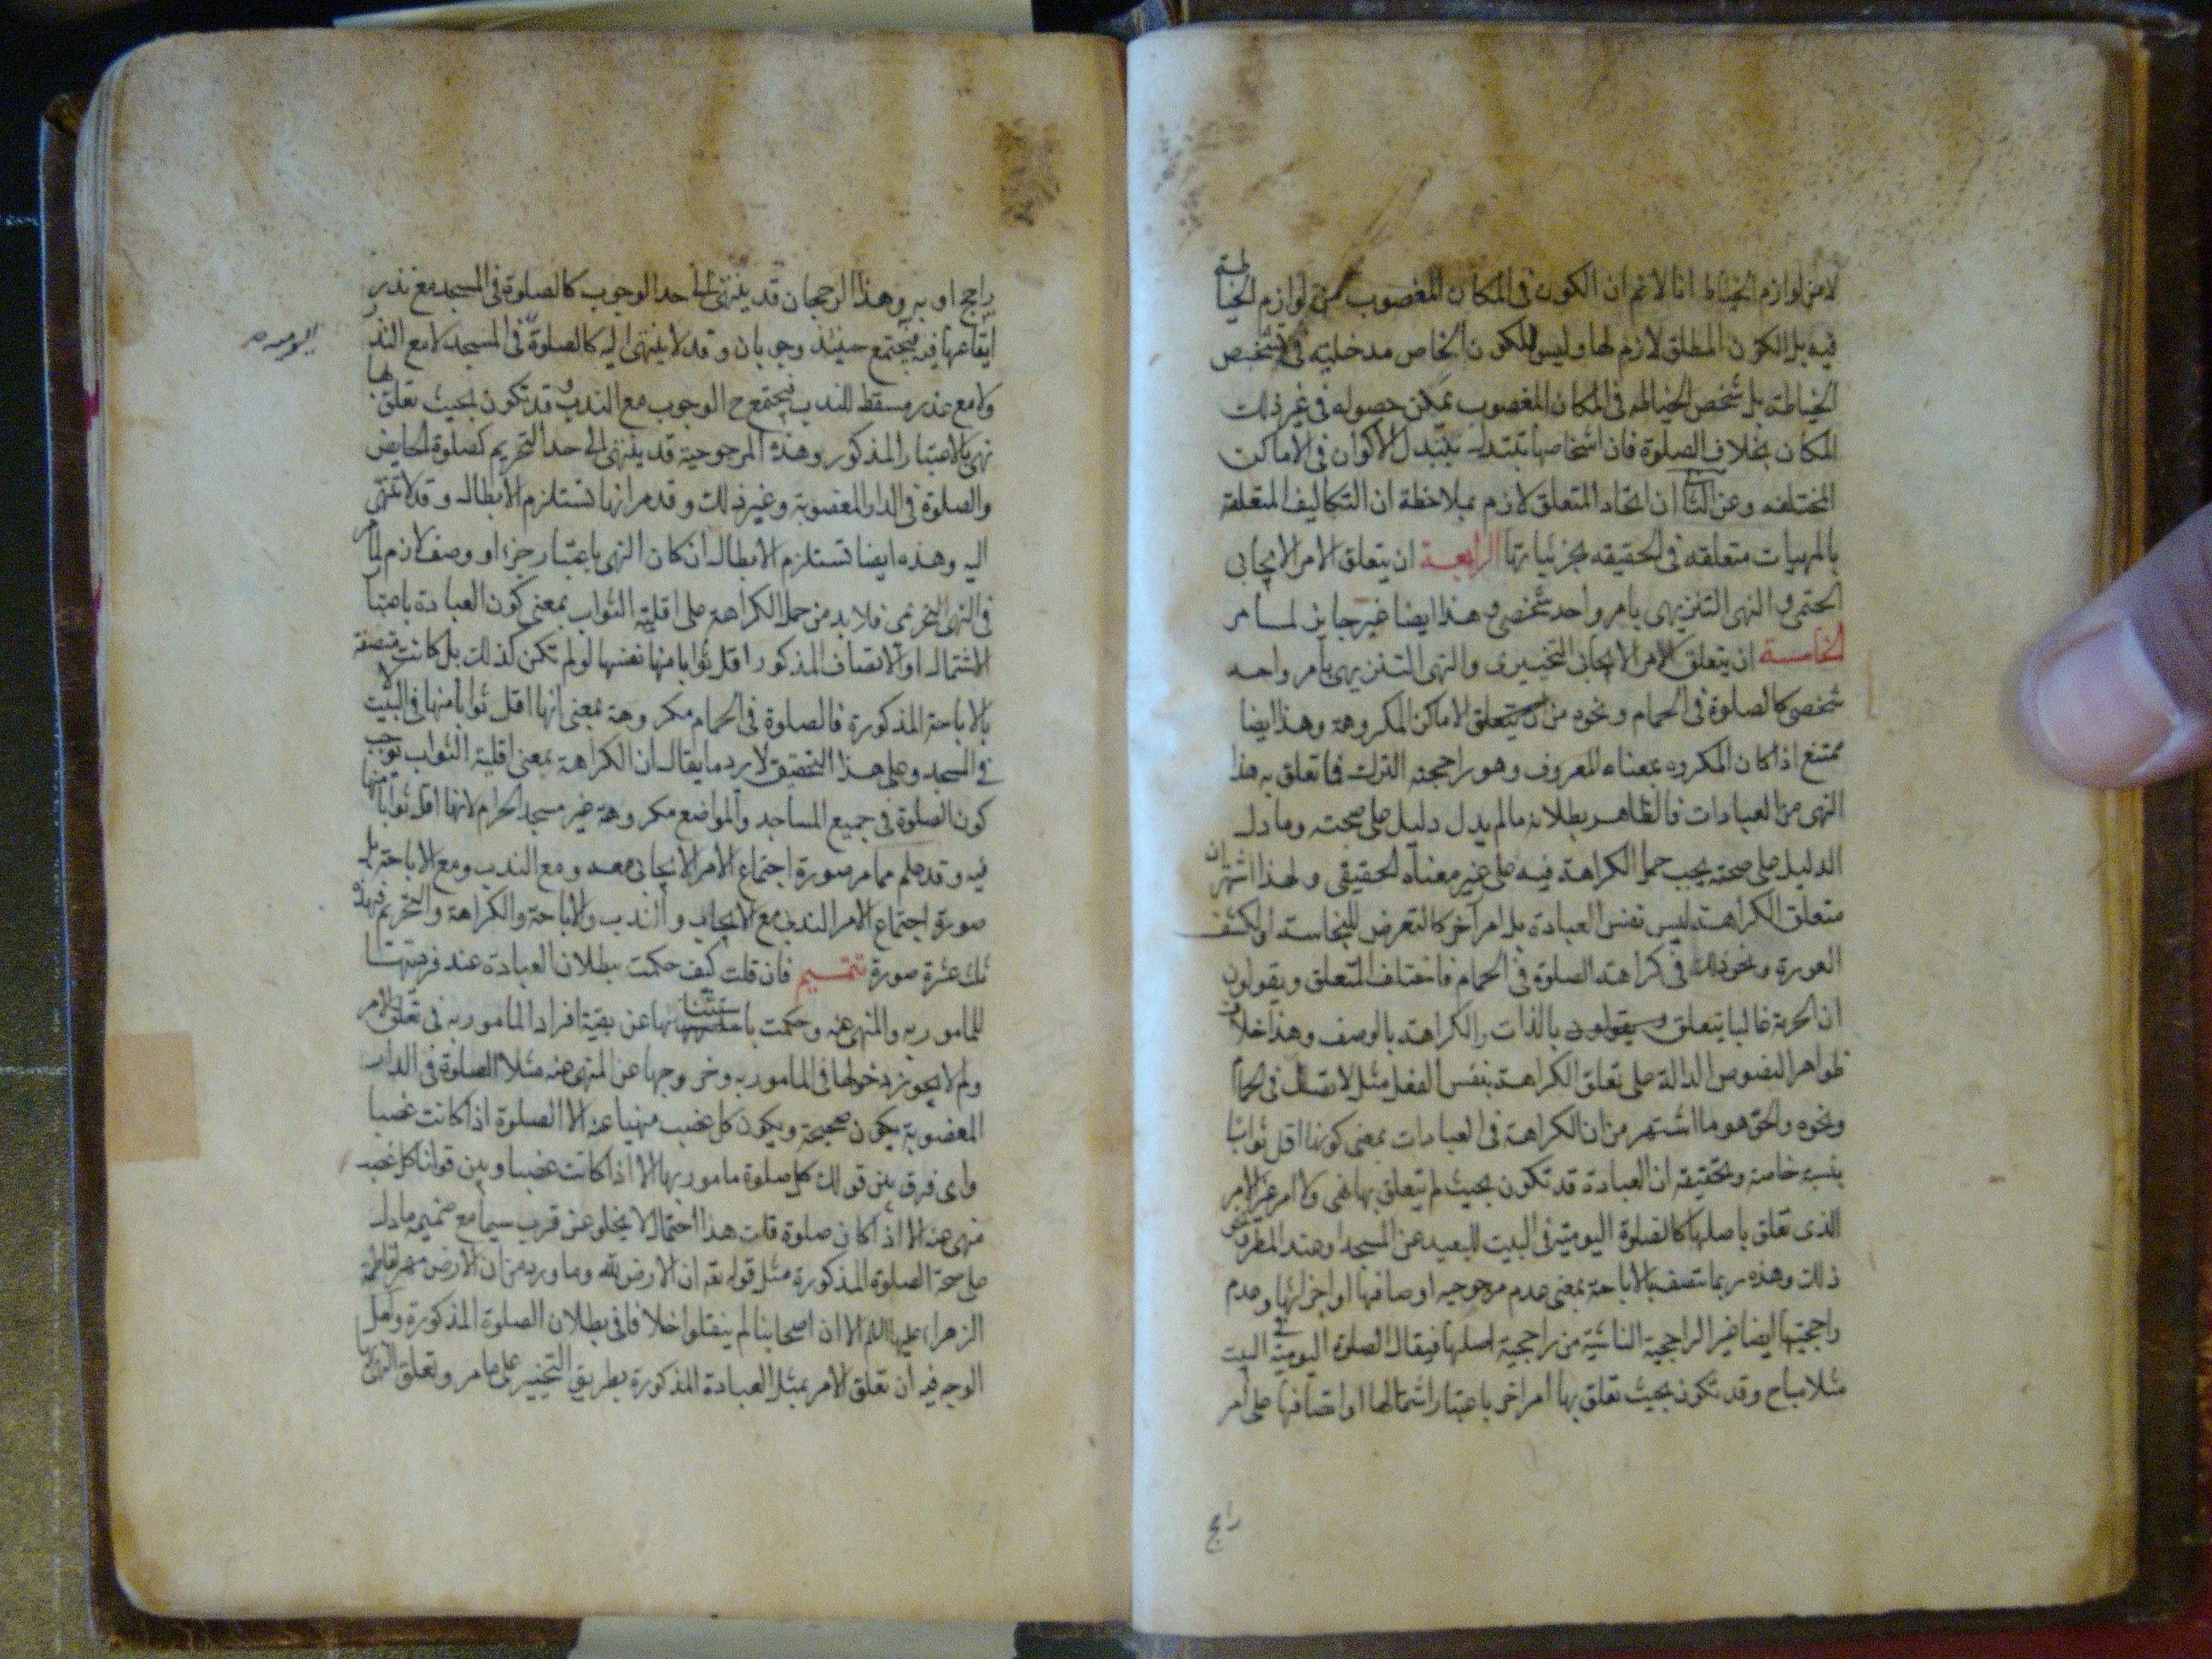 لا من لوازم الخياط انا لا نم ان الكون فى المكان المغصوب من لوازم الخياطة
فيه بل الكون المطلق لازم لها وليس للكون الخاص مدخلية فى تشخص
الخياطة بل شخص الخياطه فى المكان المغصوب يمكن حصوله فى غير ذلك
المكان بخلاف الصلوة فان اشخاصها تتبدل بتبدل الاكوان فى الاماكن
المختلفه وعن ان اتحاد المتعلق لازم بملاحظة ان التكاليف المتعلقة
بالمهيات متعلقه فى الحقيقه بجزئياتها الرابعة ان يتعلق الامر الايجابى
الحتمى والنهى التنزيهى بامر واحد شخصى وهذا ايضا غير جايز لما مر
الخامسة ان يتعلق الامر الايجابى التخييرى والنهى التنزيهى بامر واحد
شخصى كالصلوة فى الحمام ونحوه من الاماكن المكروهة وهذا ايضا
ممتنع اذا كان المكروه بمعناه المعروف وهو راجحية الترك فما تعلق به هذا
النهى من العبادات فالظاهر بطلانه ما لم يدل دليل على صحته وما دل
الدليل على صحته يجب حمل الكراهة فيه على غير معناه الحقيقى ولهذا اشتهر ان
متعلق الكراهة ليس نفس العبادة بل امر آخر كالتعرض للنجاسة او لكشف
العورة ونحو ذلك فى كراهة الصلوة فى الحمام فاختلف المتعلق ويقولون
ان الحرمة غالبا يتعلق بالذات والكراهة بالوصف وهذا خلاف
ظواهر النصوص الدالة على تعلق الكراهة بنفس الفعل مثل لا تصل فى الحمام
ونحوه والحق هو ما اشتهر من ان الكراهة فى العبادات بمعنى كونها اقل ثوابا
بنسبة خاصة وتحقيقه ان العبادة قد تكون بحيث لم يتعلق بها نهى ولا امر غير الامر
الذى تعلق باصلها كالصلوة اليومية فى البيت للبعيد عن المسجد او عند المطر ونحو
ذلك وهذه ربما تتصف بالاباحة بمعنى عدم مرجوحيه اوصافها او اجزائها وعدم
راجحيتها ايضا غير الراجحية الناشية من راجحية اصلها فيقال الصلوة اليومية فى البيت
مثلا مباح وقد تكون بحيث تعلق بها امر اخر باعتبار اشتمالها او اتصافها على امر
راجح
راجح او به وهذا الرجحان قد ينتهى الى حد الوجوب كالصلوة فى المسجد مع نذر
ايقاعها فيه فيجتمع حينئذ وجوبان وقد لا ينتهى اليه كالصلوة فى المسجد لا مع النذر
ولا مع عذر مسقط للندب فيجتمع ح الوجوب مع الندب وقد تكون بحيث تعلق بها
نهى بالاعتبار المذكور وهذه المرجوحية قد ينتهى الى حد التحريم كصلوة الحايض
والصلوة فى الدار المغصوبة وغير ذلك وقد مر انها تستلزم الابطال وقد لا تنتهى
اليه وهذه ايضا تستلزم الابطال ان كان النهى باعتبار جزء او وصف لازم لما مر
فى النهى التحريمى فلا بد من حمل الكراهة على اقلية الثواب بمعنى كون العبادة باعتبار
الاشتمال او الاتصاف المذكور اقل ثوابا منها نفسها لو لم تكن كذلك بل كانت متصفة
بالاباحة المذكورة فالصلوة فى الحمام مكروهة بمعنى انها اقل ثوابا منها فى البيت لا
فى المسجد وعلى هذا التحقيق لا يرد ما يقال ان الكراهة بمعنى اقلية الثواب توجب
كون الصلوة فى جميع المساجد والمواضع مكروهة غير مسجد الحرام لانها اقل ثوابا منها
فيه وقد علم مما مر صورة اجتماع الامر الايجابى معه ومع الندب ومع الاباحة بل
صورة اجتماع الامر الندبى مع الايجاب والندب والاباحة والكراهة والتحريم فهذه
ثلث عشرة صورة تتميم فان قلت كيف حكمت ببطلان العبادة عند فرديتها
للمامور به والمنهى عنه وحكمت باستثنائها عن بقية افراد المامور به فى تعلق الامر
ولم لا يجوز دخولها فى المامور به وخروجها عن المنهى عنه مثلا الصلوة فى الدار
المغصوبة يكون صحيحة ويكون كل غصب منهيا عنه الا الصلوة اذا كانت غصبا
واى فرق بين قولك كل صلوة مامور بها الا اذا كانت غصبا وبين قولنا كل غصب
منهى عنه الا اذا كان صلوة قلت هذا احتمال لا يخلو عن قرب سيما مع ضميمة ما دل
على صحة الصلوة المذكورة مثل قوله تعه ان الارض لله وما ورد من ان الارض مهر فاطمة
الزهراء عليها السلم الا ان اصحابنا لم ينقلوا خلافا فى بطلان الصلوة المذكورة ولعل
الوجه فيه ان تعلق الامر بمثل العبادة المذكورة بطريق التخيير على ما مر وتعلق النهى